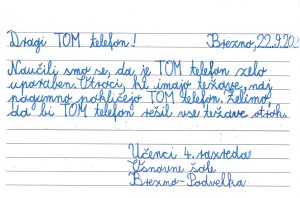 Dragi TOM telefon! Brezno, 22.9.202
Naučili smo se, da je TOM telefon zelo
uporaben. Otroci, ki imajo težave, naj
pogumno pokličejo TOM telefon. Želimo
da bi TOM telefon rešil vse težave otrok.
Učenci 4. razreda
Osnovne šole
Brezno-Podvelka